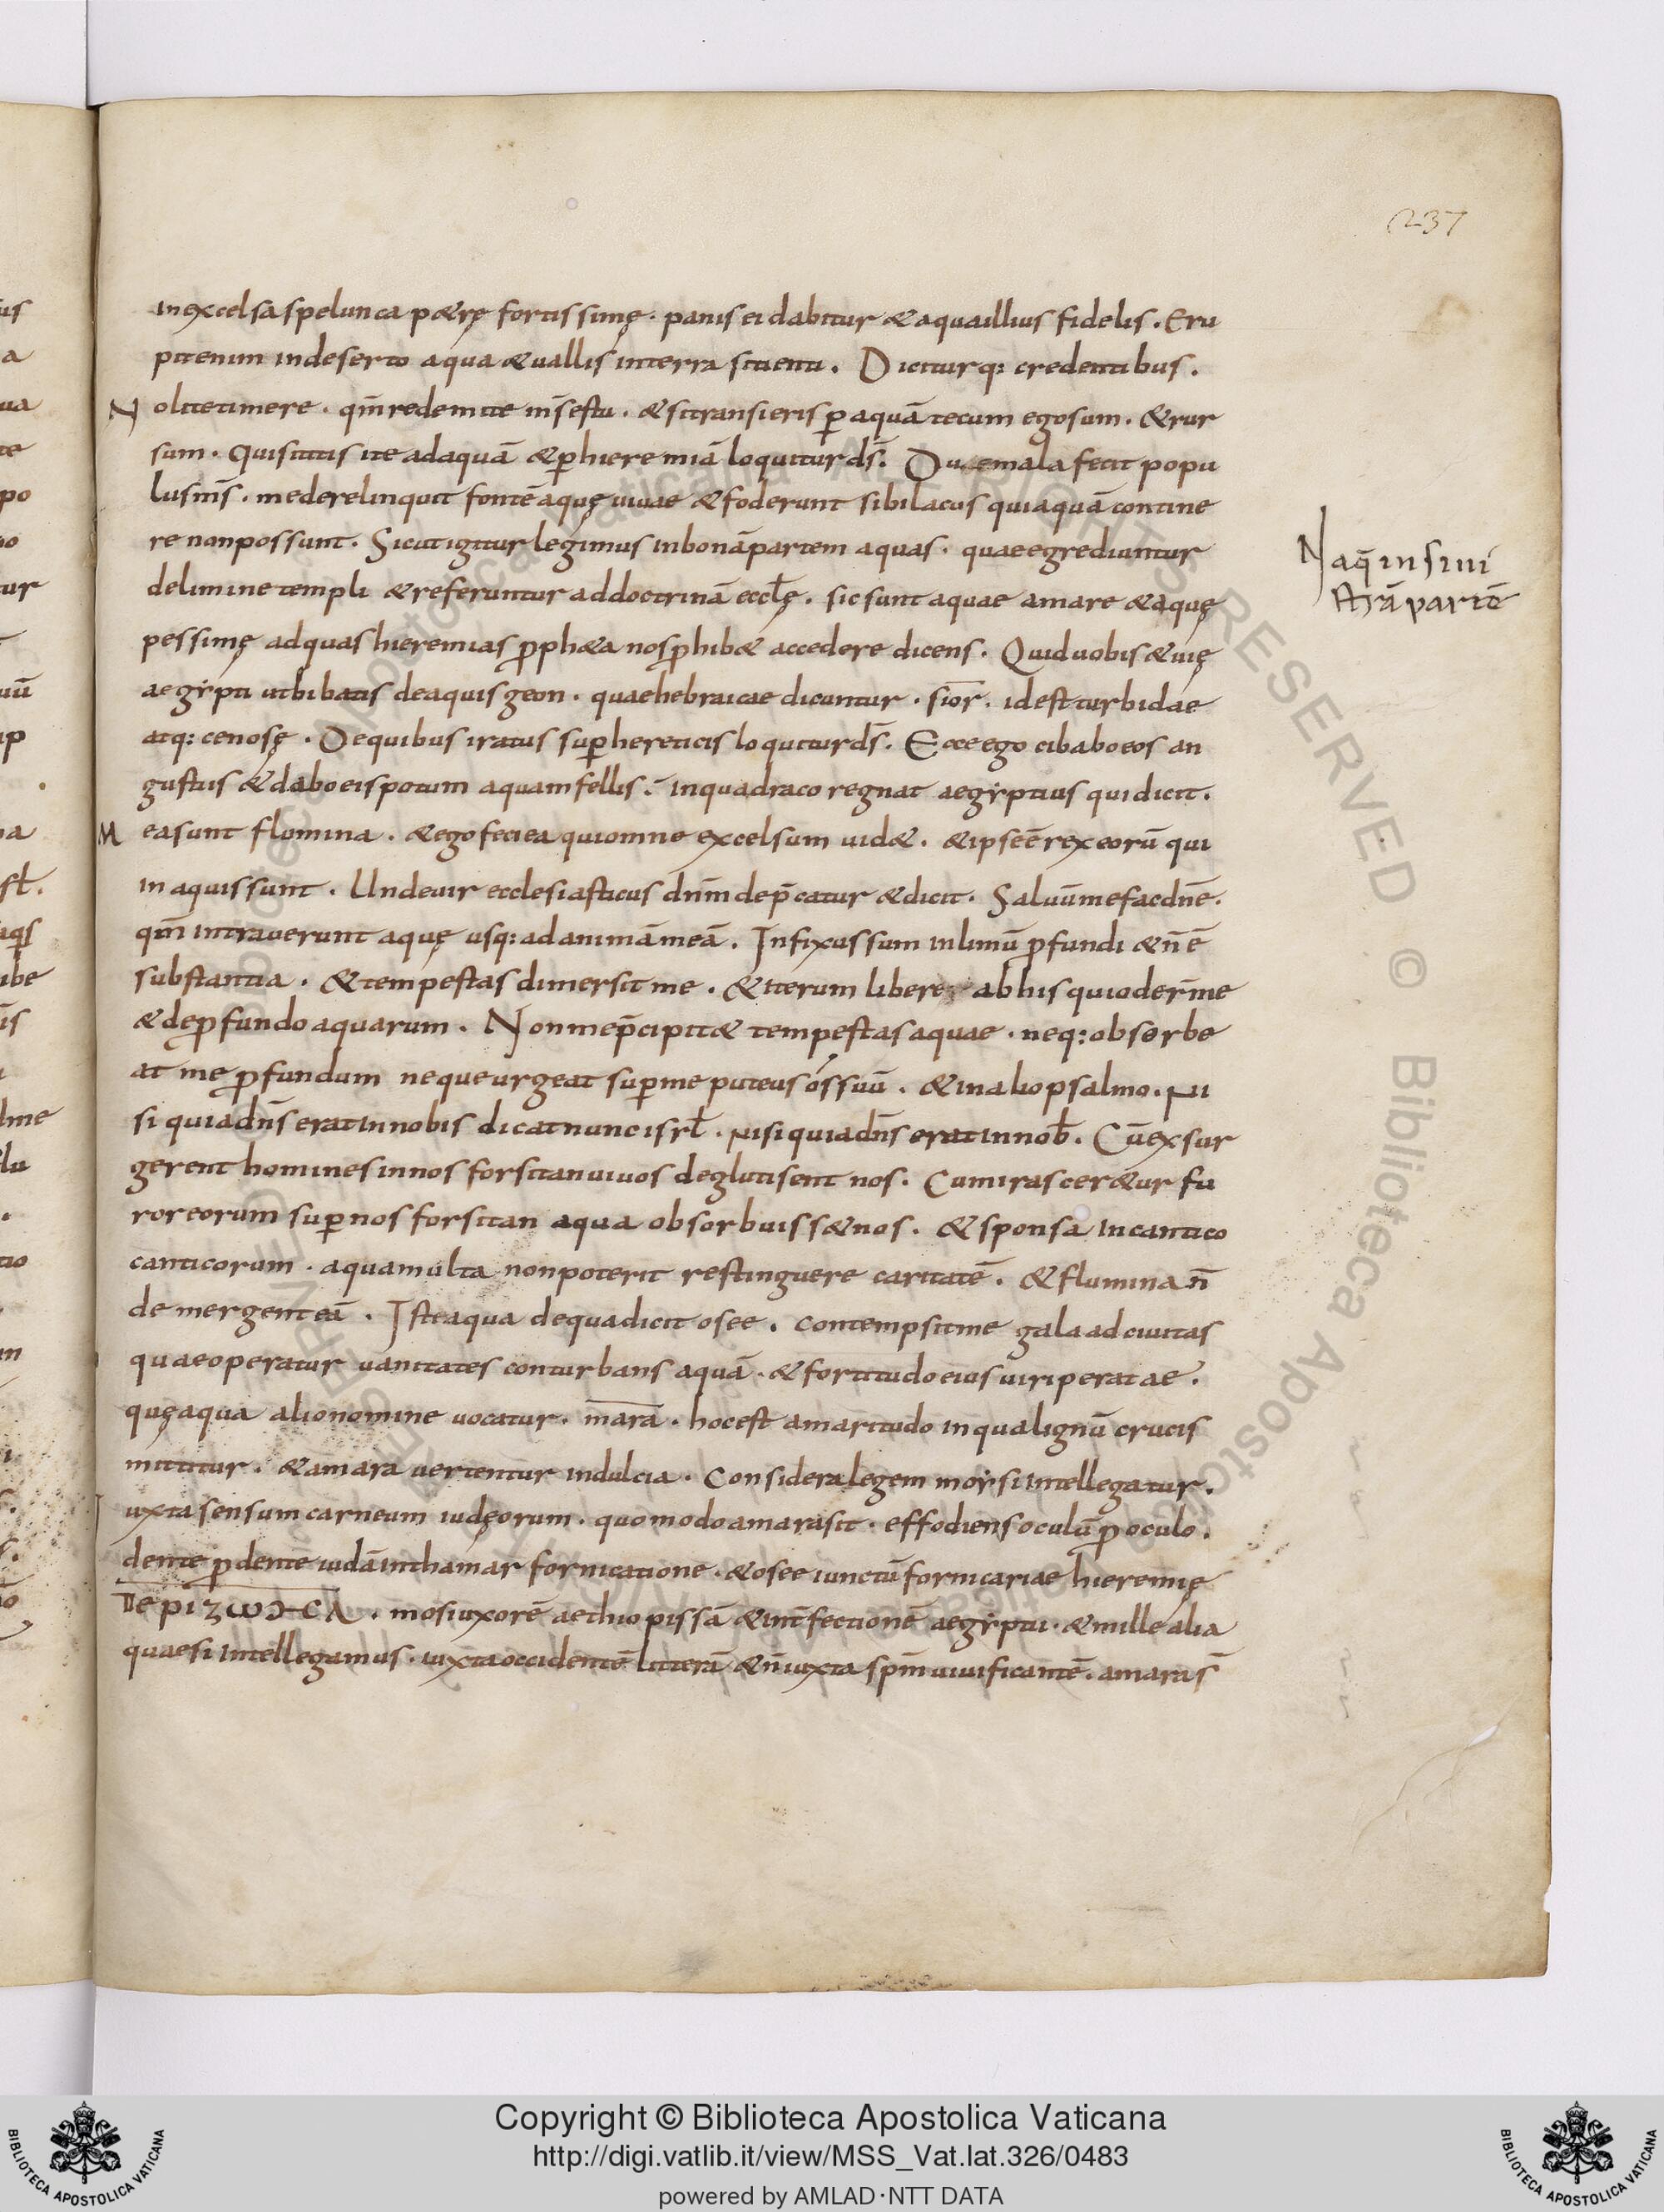 237
in excelsa spelunca p&rę fortissimę. panis ei dabitur & aqua illius fidelis. Eru
pit enim in deserto aqua & uallis in terra sitienti. Diciturq: credentibus.
Nolite timere. qm̅ redemi te in̅s es tu. & si transieris p̱ aquā tecum ego sum. & rur
sum. qui sititis ite ad aquā & p̱ hieremiā loquitur ds̅. Duo mala fecit popu
lus ms̅. me dereliquit fontē aquę uiuae & foderunt sibi lacus qui aquā contine
re non possunt. Sicut igitur legimus in bonā partem aquas. quae egrediuntur
de limine templi & referuntur ad doctrinā eccl̅ę. sic sunt aquae amare & aquę
pessimę ad quas hieremias p̱ph&a nos p̱hib& accedere dicens. Quid uobis & uię
aegẏpti ut bibatis de aquis geon. quae hebraicae dicuntur. sior̅. id est turbidae
atq: cenosę. De quibus iratus sup̱ hereticis loquitur ds̅. Ecce ego cibabo eos an
gustiis & dabo eis potum aquam fellis. in qua draco regnat aegẏptius qui dicit.
Mea sunt flumina. & ego feci ea qui omne excelsum uid&. & ipse ē rex eorū qui
in aquis sunt. Unde uir ecclesiasticus dnm̅ dep̅catur & dicit. Saluū me fac dn̅e.
qm̅ intrauerunt aquę usq: ad animā meā. Infixus sum in limū p̱fundi & n̅ ē
substantia. & tempestas dimersit me. & iterum liberer ab his qui oder̅ me
& de p̱fundo aquarum. Non me p̅cipit& tempestas aquae. neq: obsorbe
at me p̱fundum neque urgeat sup̱ me puteus os suū. & in alio psalmo. Ni
si quia dn̅s erat in nobis dicat nunc isrl̅. Nisi quia dn̅s erat in nob̅. Cū exsur
gerent homines in nos forsitan uiuos deglutisent nos. Cum irascer&ur fu
ror eorum sup̱ nos forsitan aqua obsorbuiss& nos. & sponsa in cantico
canticorum. aqua multa non poterit restinguere caritatē. & flumina n̅
demergent eā. Ista aqua de qua dicit osee. contempsit me galaad ciuitas
quae operatur uanitates conturbans aquā. & fortitudo eius uiri peratae.
quę aqua alio nomine uocatur. mara. hoc est amaritudo in qua lignū crucis
mittitur. & amara uertentur in dulcia. Considera legem moẏsi intellegatur.
Iuxta sensum carneum iudęorum. quomodo amara sit. effodiens oculū p̱ oculo.
dente p̱ dente iudā in thamar fornicatione. & osee iunctū fornicariae hieremię
moẏsi uxorē aethiopissā & int̅fectionē aegẏptii. & mille alia
quae si intellegamus. iuxta occidentē litterā & n̅ iuxta spm̅ uiuificantē. amara s̅
N aq̅ in sini
strā partē
Copyright © Biblioteca Apostolica Vaticana
http://digi.vatlib.it/view/MSS_Vat.lat.326/0483
powered by AMLAD·NTT DATA
BIBLIOTECA APOSTOLICA VATICANA
BIBLIOTECA APOSTOLICA VATICANA